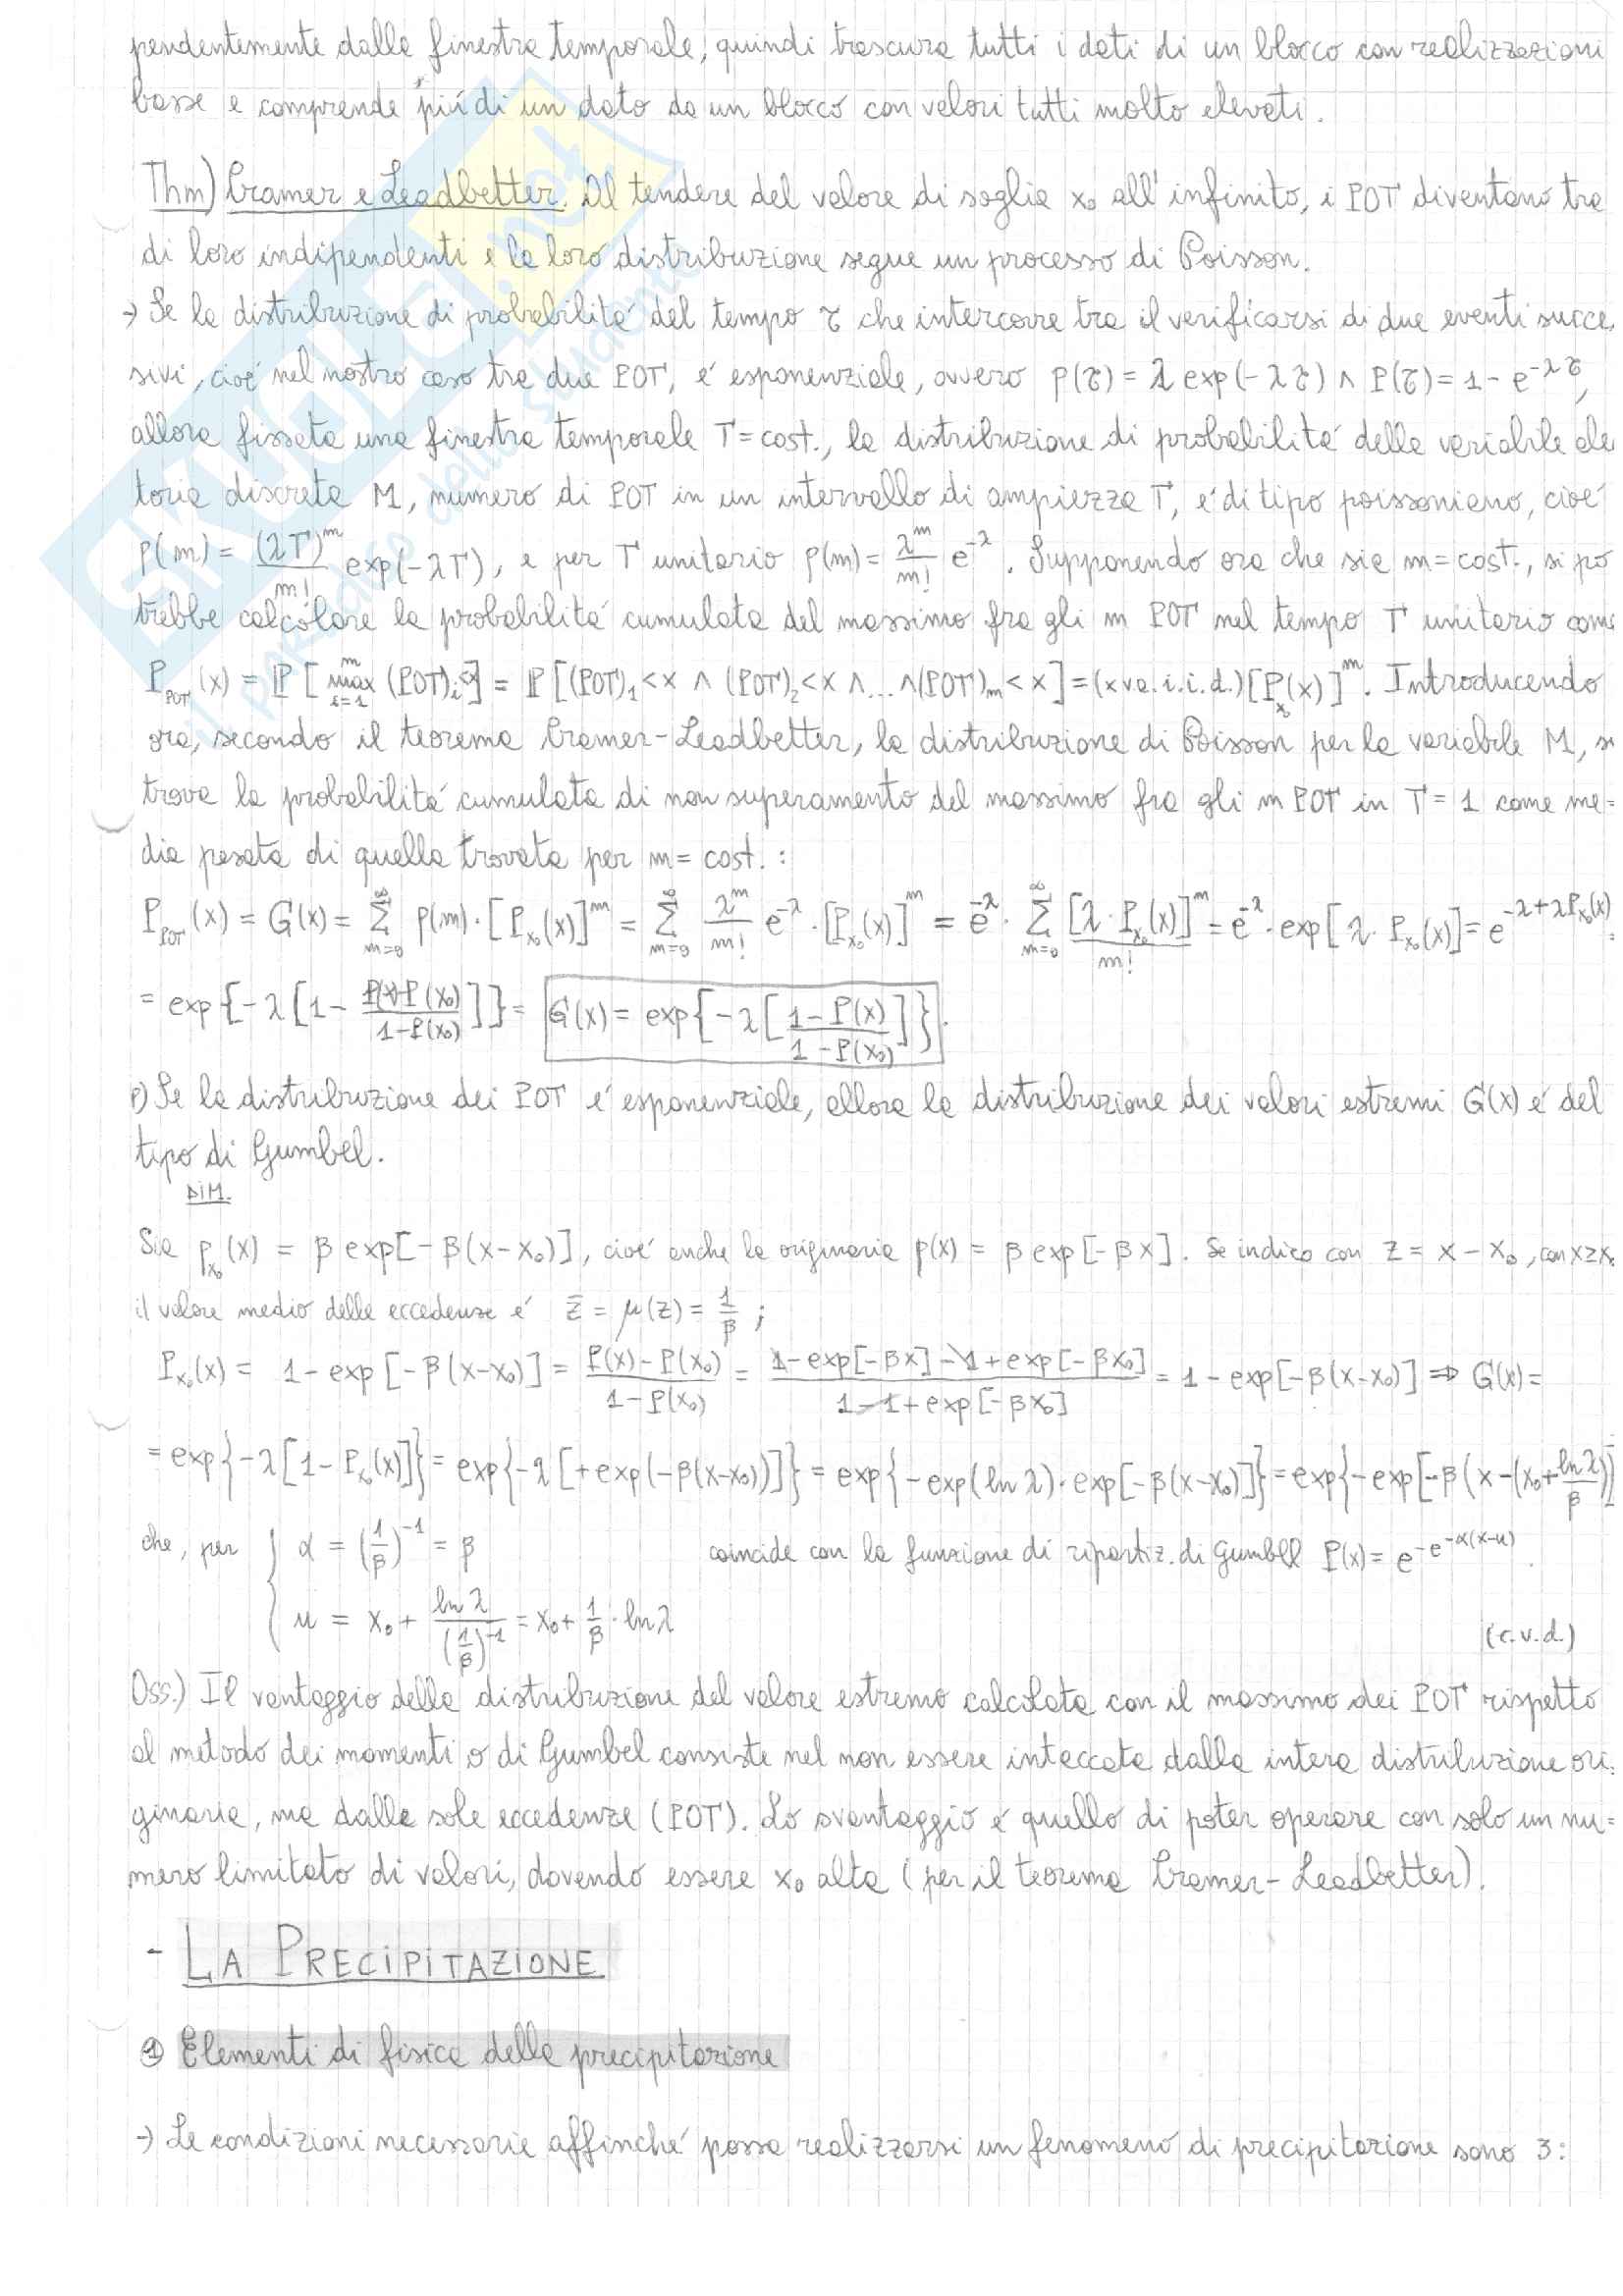 pendentemente dalla finestra temporale, quindi trascura tutti i dati di un blocco con realizzazioni
basse e comprende più di un dato da un blocco con valori tutti molto elevati.
Thm) Cramer e Leadbetter. Al tendere del valore di soglia x₀ all'infinito, i POT diventano tra
di loro indipendenti e la loro distribuzione segue un processo di Poisson.
→ Se la distribuzione di probabilità del tempo τ che intercorre tra il verificarsi di due eventi succes
sivi, cioè nel nostro caso tra due POT, è esponenziale, ovvero p(τ) = λ exp(-λτ) ∧ P(τ) = 1 - e^{-λτ},
allora fissata una finestra temporale T = cost., la distribuzione di probabilità della variabile alea
toria discreta M, numero di POT in un intervallo di ampiezza T, è di tipo poissoniano, cioè
p(m) = (λT)^m / m! exp(-λT), e per T unitario p(m) = λ^m / m! e^{-λ}. Supponendo ora che sia m = cost., si po
trebbe calcolare la probabilità cumulata del massimo fra gli m POT nel tempo T unitario come
P_POT(x) = ℙ[max_{i=1}^m (POT)_i < x] = ℙ[(POT)₁ < x ∧ (POT)₂ < x ∧ ... ∧ (POT)_m < x] = (x va. i.i.d.) [P_{x₀}(x)]^m. Introducendo
ora, secondo il teorema Cramer-Leadbetter, la distribuzione di Poisson per la variabile M, si
trova la probabilità cumulata di non superamento del massimo fra gli m POT in T = 1 come me=
dia pesata di quella trovata per m = cost. :
P_POT(x) = G(x) = Σ_{m=0}^∞ p(m)·[P_{x₀}(x)]^m = Σ_{m=0}^∞ λ^m / m! e^{-λ}·[P_{x₀}(x)]^m = e^{-λ}·Σ_{m=0}^∞ [λ·P_{x₀}(x)]^m / m! = e^{-λ}·exp[λ·P_{x₀}(x)] = e^{-λ+λP_{x₀}(x)} =
= exp{-λ[1 - (P(x)-P(x₀)) / (1-P(x₀))]} = G(x) = exp{-λ[(1-P(x)) / (1-P(x₀))]}.
P) Se la distribuzione dei POT è esponenziale, allora la distribuzione dei valori estremi G(x) è del
tipo di Gumbel.
DIM.
Sia p_{x₀}(x) = β exp[-β(x-x₀)], cioè anche la originaria p(x) = β exp[-βx]. Se indico con z = x - x₀, con x≥x₀
il valore medio delle eccedenze è z̄ = μ(z) = 1/β ;
P_{x₀}(x) = 1 - exp[-β(x-x₀)] = (P(x)-P(x₀)) / (1-P(x₀)) = (1-exp[-βx]-1+exp[-βx₀]) / (1-1+exp[-βx₀]) = 1 - exp[-β(x-x₀)] ⇒ G(x) =
= exp{-λ[1-P_{x₀}(x)]} = exp{-λ[+exp(-β(x-x₀))]} = exp{-exp(ln λ)·exp[-β(x-x₀)]} = exp{-exp[-β(x-(x₀+ln λ/β))]
che, per { α = (1/β)^{-1} = β coincide con la funzione di ripartiz. di Gumbel P(x) = e^{-e^{-α(x-u)}}.
u = x₀ + ln λ / (1/β)^{-1} = x₀ + 1/β · ln λ
(c.v.d.)
Oss.) Il vantaggio della distribuzione del valore estremo calcolata con il massimo dei POT rispetto
al metodo dei momenti o di Gumbel consiste nel non essere intaccata dalla intera distribuzione ori=
ginaria, ma dalle sole eccedenze (POT). Lo svantaggio è quello di poter operare con solo un nu=
mero limitato di valori, dovendo essere x₀ alta (per il teorema Cramer-Leadbetter).
- LA PRECIPITAZIONE
① Elementi di fisica della precipitazione
→ Le condizioni necessarie affinché possa realizzarsi un fenomeno di precipitazione sono 3: